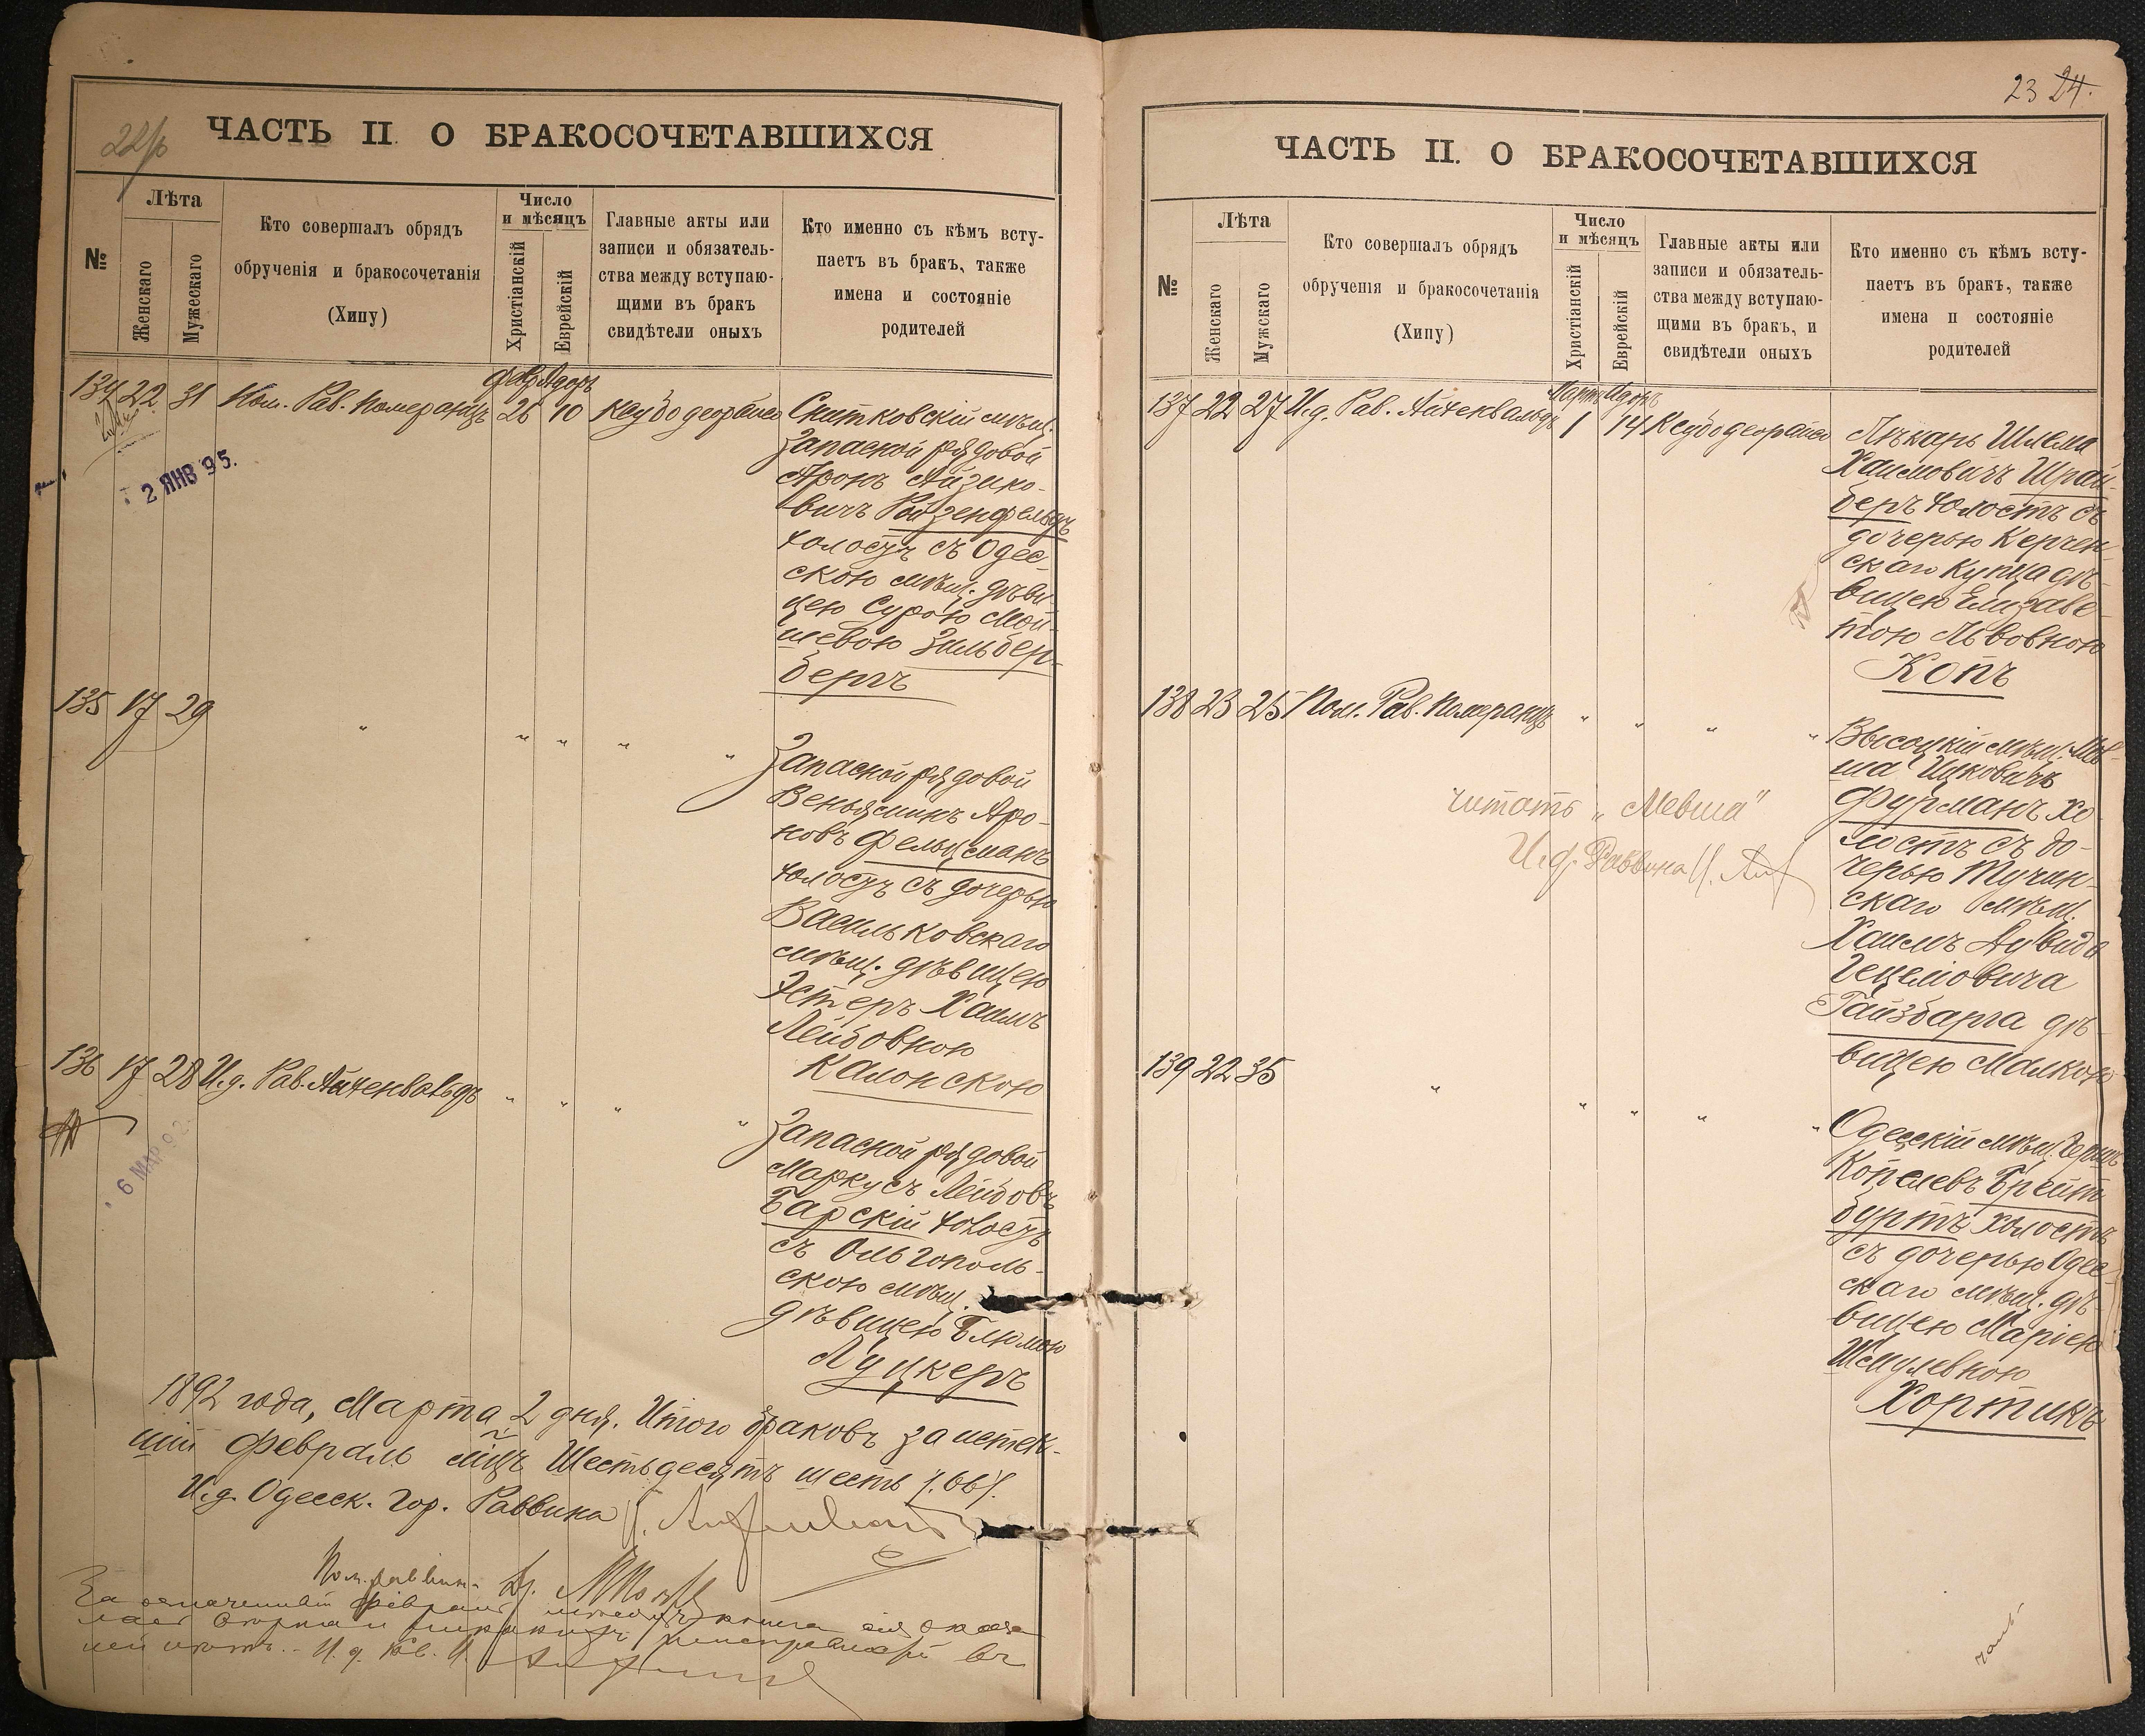 22 ЧАСТЬ II. О БРАКОСОЧЕТАВШИХСЯ
№
Лѣта
Женскаго
Мужескаго
Кто совершалъ обрядъ
обрученія и бракосочетанія
(Хипу)
Число
и мѣсяцъ
Христіанскій
Еврейскій
Главные акты или
записи и обязатель-
ства между вступаю-
щими въ бракъ
свидѣтели оныхъ
Кто именно съ кѣмъ всту-
паетъ въ бракъ, также
имена и состояніе
родителей
Февр Адоръ
134 22 31 Пом. Рав. Померанцъ 26 10
2 ЯНВ 95.
Снитковскій мѣщ.
Запасной рядовой
Аронъ Айзико-
вичъ Розенфельдъ
холостъ съ Одес-
скою мѣщ. дѣви-
цею Сурою Мой-
шевою Зильбер-
бергъ
135 17 29 " " " " "
Запасной рядовой
Веньяминъ Аро-
новъ Фельцманъ
холостъ съ дочерью
Васильковскаго
мѣщ. дѣвицею
Эстеръ Хаимъ
Лейбовною
Калонскою
136 17 28 И.д. Рав. Айхенвальдъ " " " "
6 МАР 92.
Запасной рядовой
Маркусъ Лейбовъ
Барскій холостъ
съ Ольгополь-
скою мѣщ.
дѣвицею Блюмою
Луцкеръ
1892 года, Марта 2 дня. Итого браковъ за истек-
шій Февраль мѣцъ Шестьдесятъ шесть /.66/.
И.д. Одесск. Гор. Раввина
Пом. раввин.
23 24.
ЧАСТЬ II. О БРАКОСОЧЕТАВШИХСЯ
№
Лѣта
Женскаго
Мужскаго
Кто совершалъ обрядъ
обрученія и бракосочетанія
(Хипу)
Число
и мѣсяцъ
Христіанскій
Еврейскій
Главные акты или
записи и обязатель-
ства между вступаю-
щими въ бракъ, и
свидѣтели оныхъ
Кто именно съ кѣмъ всту-
паетъ въ бракъ, также
имена и состояніе
родителей
Мартъ Адоръ
137 22 27 И.д. Рав. Айхенвальдъ 1 14
Лѣкарь Шлема
Хаимовичъ Шрай-
беръ холостъ съ
дочерью Керчен-
скаго купца дѣ-
вицею Елизаве-
тою Львовною
Копъ
138 23 25 Пом. Рав. Померанцъ " " " "
Высоцкій мѣщ. Мов-
ша Ицковичъ
Фурманъ хо-
лостъ съ до-
черью Тучин-
скаго мѣщ.
Хаимъ Дувида
Гецеліовича
Гайзбарга дѣ-
вицею Малкою
читать „Мевша"
И.д. Раввина
139 22 35 " " " " "
Одесскій мѣщ. Гершъ
Копелевъ Брейт-
буртъ холостъ
съ дочерью Одес-
скаго мѣщ. дѣ-
вицею Маріею
Шмулевною
Хортикъ